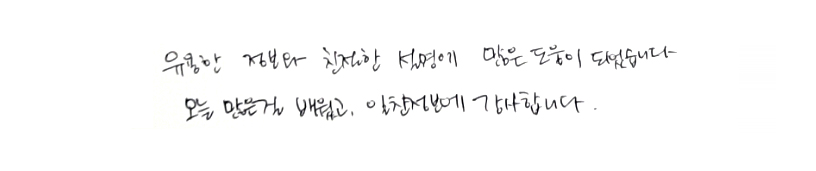 유용한 정보와 친절한 설명에 많은 도움이 되었습니다
오늘 많은걸 배웠고, 알찬정보에 감사합니다.